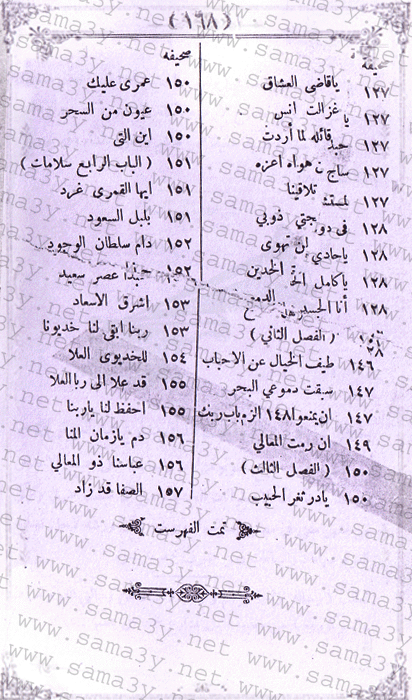 (١٦٨)
صحيفه
١٢٧ ياقاضى العشاق
١٢٧ يا غزالت انس
١٢٧ قائله لما أردت
١٢٧ هواه اعزه
١٢٧ تلاقينا
١٢٨ ذوبي
١٢٨ ياحادي تهوى
١٢٨ ياكامل الخدين
١٢٨ أنا
(الفصل الثاني)
١٤٦ طيف الخيال عن الاحباب
١٤٧ سبقت دموعي البحر
١٤٧ ان يمنعوا ١٤٨ الزم باب ربك
١٤٩ ان رمت المعالي
١٥٠ (الفصل الثالث)
١٥٠ يادر ثغر الحبيب
صحيفه
١٥٠ عمرى عليك
١٥٠ عيون من السحر
١٥٠ اين التى
١٥١ (الباب الرابع سلامات)
١٥١ ايها القمرى غرد
١٥١ بلبل السعود
١٥٢ دام سلطان الوجود
١٥٢ عصر سعيد
١٥٣ اشرق الاسعاد
١٥٣ ربنا ابقى لنا خديونا
١٥٤ للخديوى العلا
١٥٥ قد علا الى ربا العلا
١٥٥ احفظ لنا ياربنا
١٥٦ دم يازمان المنا
١٥٦ عباسنا ذو المعالي
١٥٧ الصفا قد زاد
تمت الفهرست
www.sama3y.net